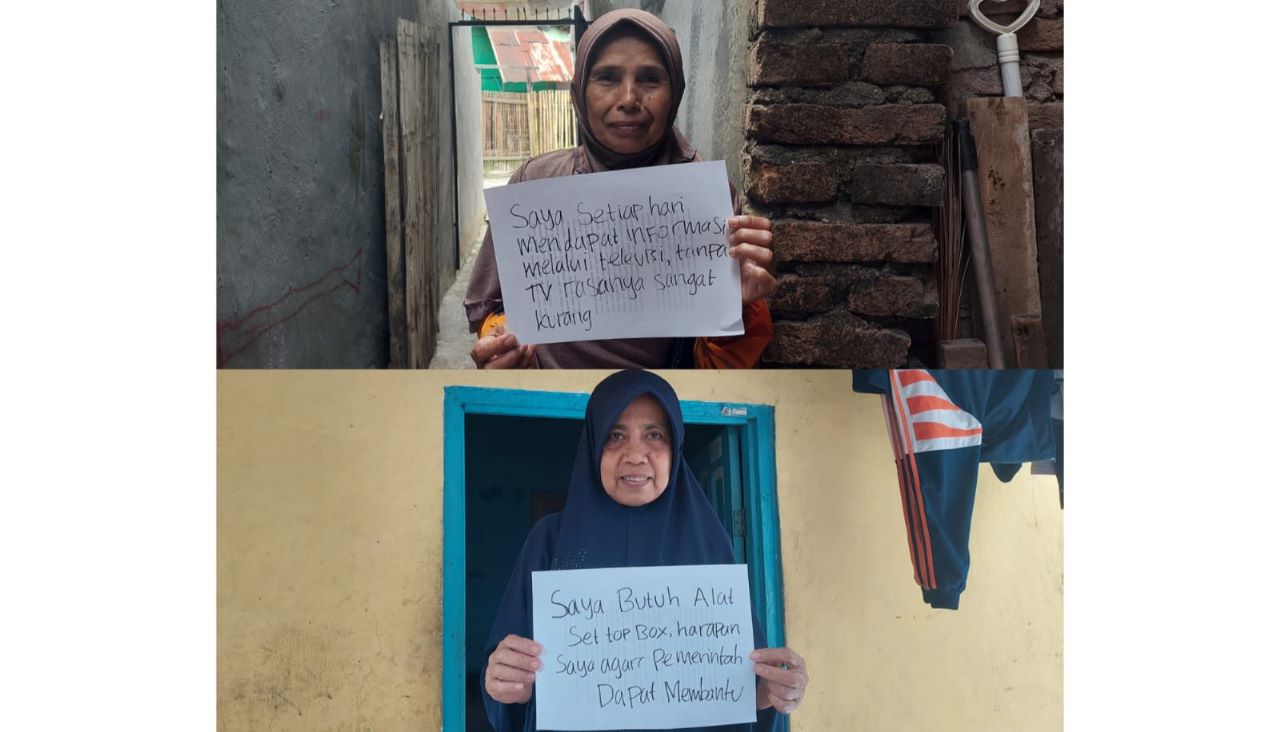 Saya Setiap hari
mendapat informasi
melalui televisi, tanpa
TV rasanya sangat
kurang
Saya Butuh Alat
Set top Box, harapan
Saya agar Pemerintah
Dapat Membantu